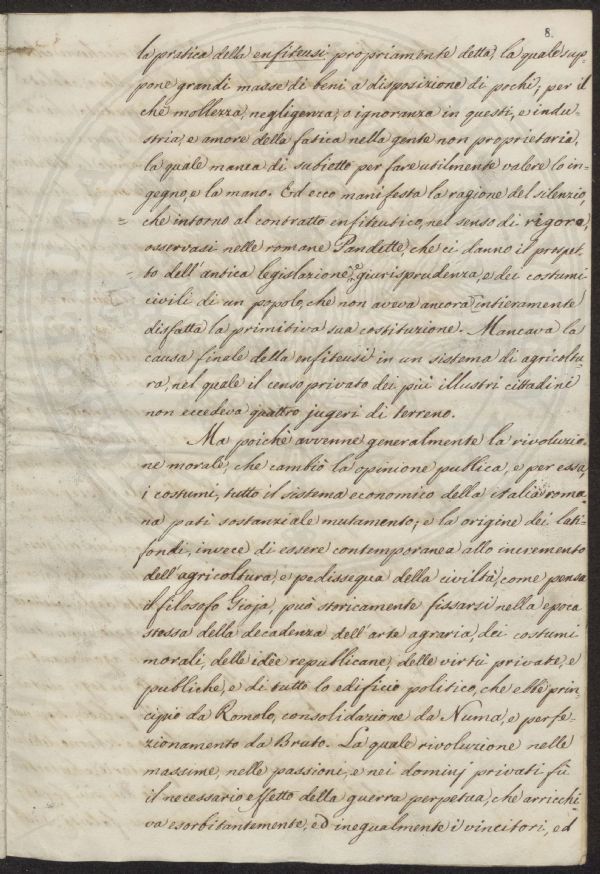 8.
la pratica della enfiteusi propriamente detta, la quale sup-
pone grandi masse di beni a disposizione di pochi; per il
che mollezza, negligenza, o ignoranza in questi, e indu-
stria, e amore della fatica nella gente non proprietaria,
la quale manca di subietto per fare utilmente valere lo in-
gegno, e la mano. Ed ecco manifesta la ragione del silenzio,
che intorno al contratto enfiteutico, nel senso di rigore,
osservasi nelle romane Pandette, che ci danno il prospet-
to dell'antica legislazione, e giurisprudenza, e dei costumi
civili di un popolo, che non aveva ancora intieramente
disfatta la primitiva sua costituzione. Mancava la
causa finale della enfiteusi in un sistema di agricoltu-
ra, nel quale il censo privato dei più illustri cittadini
non eccedeva quattro jugeri di terreno.
Ma poichè avvenne generalmente la rivoluzio-
ne morale, che cambiò la opinione publica, e per essa,
i costumi, tutto il sistema economico della italia roma-
na patì sostanziale mutamento; e la origine dei lati-
fondi, invece di essere contemporanea allo incremento
dell'agricoltura, e pedissequa della civiltà, come pensa
il filosofo Gioja, può storicamente fissarsi nella epoca
stessa della decadenza dell'arte agraria, dei costumi
morali, delle idèe republicane, delle virtù private, e
publiche, e di tutto lo edificio politico, che ebbe prin-
cipio da Romolo, consolidazione da Numa, e perfe-
zionamento da Bruto. La quale rivoluzione nelle
massime, nelle passioni, e nei dominj privati fù
il necessario effetto della guerra perpetua, che arricchi-
va esorbitantemente, ed inegualmente i vincitori, ed